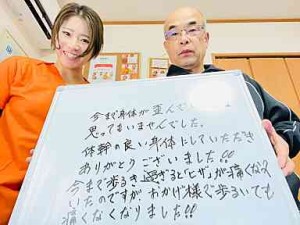 今まで身体が歪んで
思ってもいませんでした。
体幹の良い身体にしていただき
ありがとうございました!!
今まで歩き過ぎると「ヒザ」が痛くなって
いたのですが おかげ様で歩いても
痛くなくなりました!!